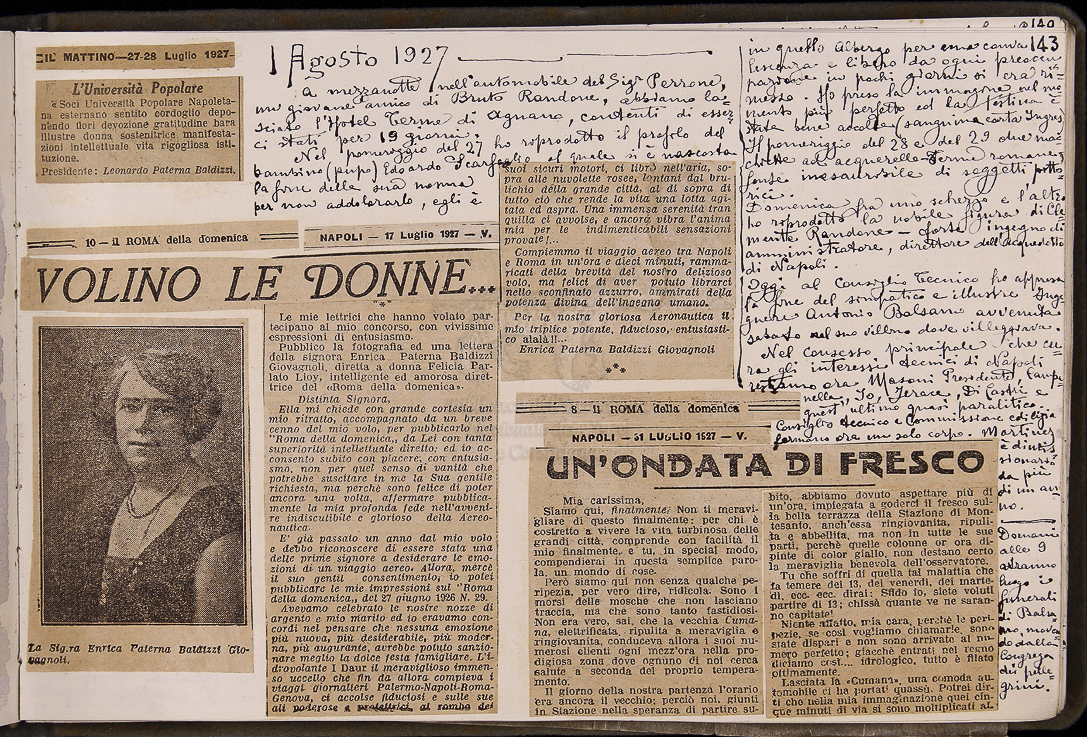 149
143
IL MATTINO—27-28 Luglio 1927
L'Università Popolare
Soci Università Popolare Napoleta-
na esternano sentito cordoglio depo-
nendo fiori devozione gratitudine bara
illustre donna sostenitrice manifesta-
zioni intellettuale vita rigogliosa isti-
tuzione.
Presidente: Leonardo Paterna Baldizzi.
1 Agosto 1927
a mezzanotte nell'automobile del Sigr Perrone,
un giovane amico di Bruto Randone, abbiamo la-
sciato l'Hotel Terme di Agnano, contenti di esser
ci stati per 19 giorni.
Nel pomeriggio del 27 ho riprodotto il profilo del
bambino (pupo) Edoardo Scarfoglio al quale si è nascosta
la fine della sua nonna
per non addolorarlo, egli è
in quello Albergo per una conva
lescenza e libero da ogni preoccu
pazione in pochi giorni si era ri-
messo. Ho preso la immagine nel mo
mento più perfetto ed la festina è
stata bene accolta (sanguina carta Ingres)
Il pomeriggio del 28 e del 29 due mac
chiette ad acquerello - Terme romane
fonte inesauribile di soggetti pitto
rici.
Domenica fra uno scherzo e l'altro
ho riprodotto la nobile figura di Cle
mente Randone — forte ingegno di
amministratore, direttore dell'Acquedotto
di Napoli.
Oggi al Consiglio Tecnico ho appreso
la fine del simpatico e illustre Inge
gnere Antonio Balsamo avvenuta
sabato nel suo villino dove villeggiava.
Nel consesso principale che cu-
ra gli interessi tecnici di Napoli
restiamo ora Masoni Presidente,
nella, Io, Jerace, Di Castri e
quest'ultimo quasi paralitico.
Consiglio tecnico e Commissione edilizia
formano ora un solo corpo. Martinez
è dimis
sionario
da più
di un an
no.
Domani
alle 9
avranno
luogo i
funerali
di Balsa
mo,
dalla
Congrega
dei pelle
grini.
10 — il ROMA della domenica
NAPOLI — 17 Luglio 1927 — V.
VOLINO LE DONNE...
La Sig.ra Enrica Paterna Baldizzi Gio-
vagnoli.
Le mie lettrici che hanno volato par-
tecipano al mio concorso, con vivissime
espressioni di entusiasmo.
Pubblico la fotografia ed una lettera
della signora Enrica Paterna Baldizzi
Giovagnoli, diretta a donna Felicia Par-
lato Lioy, intelligente ed amorosa diret-
trice del «Roma della domenica».
Distinta Signora,
Ella mi chiede con grande cortesia un
mio ritratto, accompagnato da un breve
cenno del mio volo, per pubblicarlo nel
"Roma della domenica,, da Lei con tanta
superiorità intellettuale diretto; ed io ac-
consento subito con piacere, con entusia-
smo, non per quel senso di vanità che
potrebbe suscitare in me la Sua gentile
richiesta, ma perchè sono felice di poter
ancora una volta, affermare pubblica-
mente la mia profonda fede nell'avveni-
re indiscutibile e glorioso della Aereo-
nautica.
E' già passato un anno dal mio volo
e debbo riconoscere di essere stata una
delle prime signore a desiderare le emo-
zioni di un viaggio aereo. Allora, mercè
il suo gentil consentimento, io potei
pubblicare le mie impressioni sul "Roma
della domenica,, del 27 giugno 1926 N. 29.
Avevamo celebrato le nostre nozze di
argento e mio marito ed io eravamo con-
cordi nel pensare che nessuna emozione
più nuova, più desiderabile, più moder-
na, più augurante, avrebbe potuto sanzio-
nare meglio la dolce festa famigliare. L'i-
drovolante I Daur il meraviglioso immen-
so uccello che fin da allora compieva i
viaggi giornalieri Palermo-Napoli-Roma-
Genova, ci accolse fiduciosi e sulle sue
ali poderose a protettrici, al rombo dei
suoi sicuri motori, ci librò nell'aria, so-
pra alle nuvolette rosee, lontani dal bru-
lichio della grande città, al di sopra di
tutto ciò che rende la vita una lotta agi-
tata ed aspra. Una immensa serenità tran
quilla ci avvolse, e ancora vibra l'anima
mia per le indimenticabili sensazioni
provate!...
Compiemmo il viaggio aereo tra Napoli
e Roma in un'ora e dieci minuti, ramma-
ricati della brevità del nostro delizioso
volo, ma felici di aver potuto librarci
nello sconfinato azzurro, ammirati della
potenza divina dell'ingegno umano.
Per la nostra gloriosa Aeronautica il
mio triplice potente, fiducioso, entusiasti-
co alalà!!...
Enrica Paterna Baldizzi Giovagnoli
8 — il ROMA della domenica
NAPOLI — 31 LUGLIO 1927 — V.
UN'ONDATA DI FRESCO
Mia carissima,
Siamo qui, finalmente! Non ti meravi-
gliare di questo finalmente: per chi è
costretto a vivere la vita turbinosa delle
grandi città, comprende con facilità il
mio finalmente, e tu, in special modo,
compenderai in questa semplice paro-
la, un mondo di cose.
Però siamo qui non senza qualche pe-
ripezia, per vero dire, ridicola. Sono i
morsi delle mosche che non lasciano
traccia, ma che sono tanto fastidiosi.
Non era vero, sai, che la vecchia Cuma-
na, elettrificata, ripulita a meraviglia e
ringiovanita, conduceva allora i suoi nu-
merosi clienti ogni mezz'ora nella pro-
digiosa zona dove ognuno di noi cerca
salute a seconda del proprio tempera-
mento.
Il giorno della nostra partenza l'orario
era ancora il vecchio; perciò noi, giunti
in Stazione nella speranza di partire su-
bito, abbiamo dovuto aspettare più di
un'ora, impiegata a goderci il fresco sul-
la bella terrazza della Stazione di Mon-
tesanto, anch'essa ringiovanita, ripuli-
ta e abbellita, ma non in tutte le sue
parti, perchè quelle colonne or ora di-
pinte di color giallo, non destano certo
la meraviglia benevola dell'osservatore.
Tu che soffri di quella tal malattia che
fa temere dei 13, dei venerdì, dei marte-
dì, ecc. ecc. dirai: Sfido io, siete voluti
partire di 13; chissà quante ve ne saran-
no capitate!
Niente affatto, mia cara, perchè le peri-
pezie, se così vogliamo chiamarle, sono
state dispari e non sono arrivate al nu-
mero perfetto; giacchè entrati nel regno
diciamo così.... idrologico, tutto è filato
ottimamente.
Lasciata la «Cumana», una comoda au-
tomobile ci ha portati quassù. Potrei dir-
ti che nella mia immaginazione quei cin-
que minuti di via si sono moltiplicati al